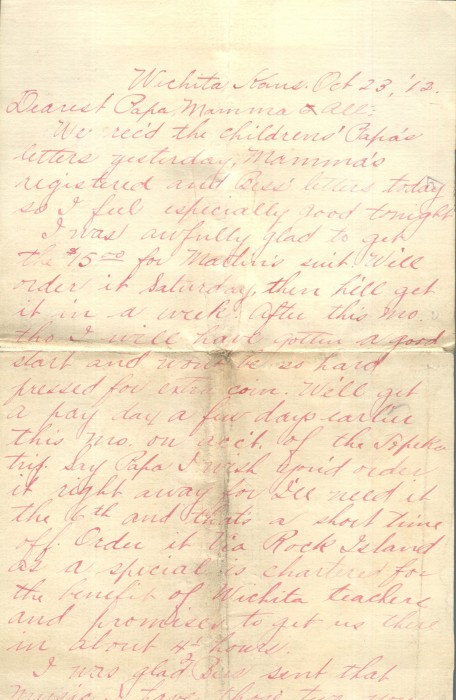 Wichita Kans. Oct 23, '12.
Dearest Papa, Mamma & All:
We rec'd the childrens' Papa's
letters yesterday, Mamma's
registered and Bess' letters today
so I feel especially good tonight
I was awfully glad to get
the $15.00 for Martin's suit. We'll
order it Saturday, then he'll get
it in a week. After this mo.
tho I will have gotten a good
start and won't be so hard
pressed for extra coin. We'll get
a pay day a few days earlier
this mo. on acct. of the Topeka
trip. Say Papa I wish you'd order
it right away for I'll need it
the 6th and that's a short time
off. Order it Via Rock Island
as a special is chartered for
the benefit of Wichita teachers
and promises to get us there
in about 4 hours.
I was glad Bess sent that
music I have those two